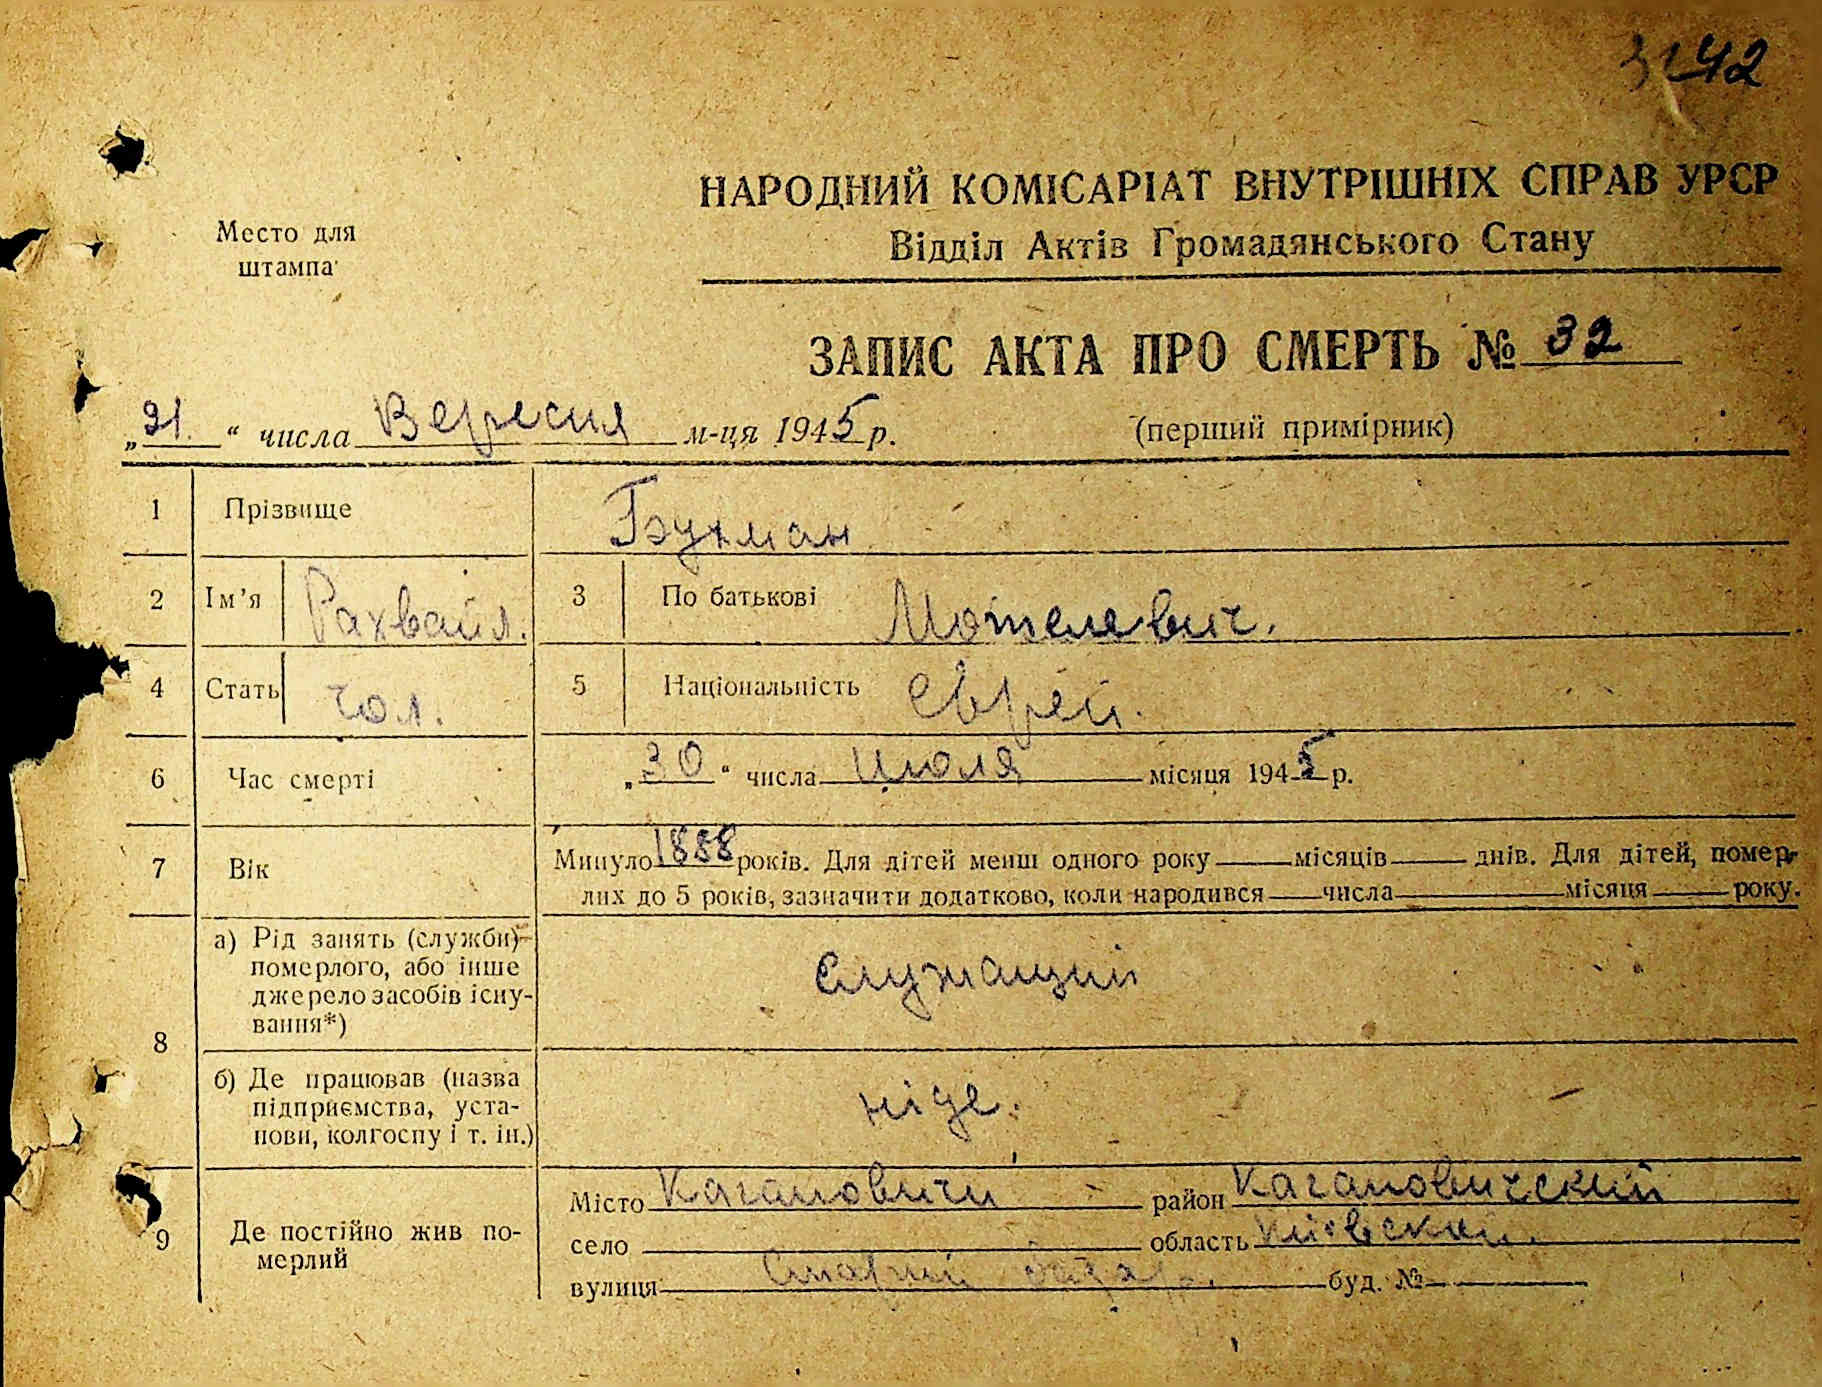 3142
НАРОДНИЙ КОМІСАРІАТ ВНУТРІШНІХ СПРАВ УРСР
Место для
штампа
Відділ Актів Громадянського Стану
ЗАПИС АКТА ПРО СМЕРТЬ № 32
„21.“ числа Вересня м-ця 1945 р. (перший примірник)
1 Прізвище Бухман
2 Ім’я Рахваил. 3 По батькові Мотелевич.
4 Стать чол. 5 Національність Єврей.
6 Час смерті „30“ числа июля місяця 1945 р.
7 Вік Минуло 1888 років. Для дітей менш одного року місяців днів. Для дітей, помер-
лих до 5 років, зазначити додатково, коли народився числа місяця року.
8 а) Рід занять (служби)
померлого, або інше
джерело засобів існу-
вання*)
Служащий
б) Де працював (назва
підприємства, уста-
нови, колгоспу і т. ін.)
ніде.
9 Де постійно жив по-
мерлий
Місто Кагановичи район Кагановичский
село область Київской.
вулиця Старий базар. буд. №